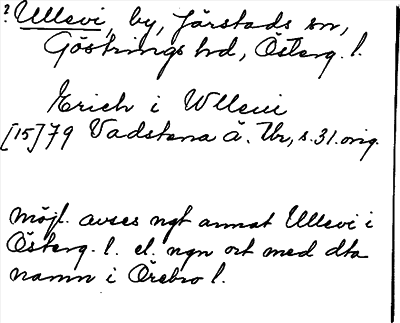 ? Ullevi, by, Järstads sn,
Göstrings hd, Österg. l.
Erich i Wllewi
[15]79 Vadstena ä. Tb, s. 31. orig.
möjl. avses ngt annat Ullevi i
Österg. l. el. ngn ort med dta
namn i Örebro l.